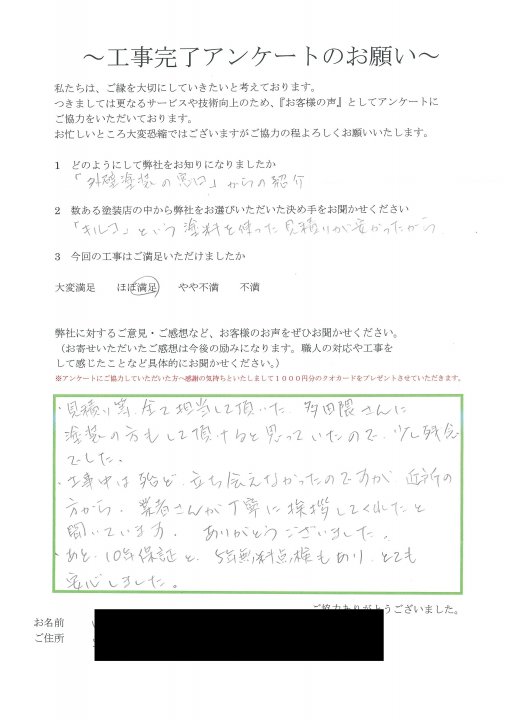 ～工事完了アンケートのお願い～
私たちは、ご縁を大切にしていきたいと考えております。
つきましては更なるサービスや技術向上のため、『お客様の声』としてアンケートに
ご協力をいただいております。
お忙しいところ大変恐縮ではございますがご協力の程よろしくお願いいたします。
1 どのようにして弊社をお知りになりましたか
「外壁塗装の窓口」からの紹介
2 数ある塗装店の中から弊社をお選びいただいた決め手をお聞かせください
「キルコ」という塗料を使った見積りが安かったから
3 今回の工事はご満足いただけましたか
大変満足 ほぼ満足 やや不満 不満
弊社に対するご意見・ご感想など、お客様のお声をぜひお聞かせください。
（お寄せいただいたご感想は今後の励みになります。職人の対応や工事を
して感じたことなど具体的にお聞かせください。）
※アンケートにご協力していただいた方へ感謝の気持ちといたしまして１０００円分のクオカードをプレゼントさせていただきます。
・見積り等、全て担当して頂いた、多田隈さんに
塗装の方もして頂けると思っていたので、少し残念
でした。
・工事中は殆ど、立ち会えなかったのですが、近所の
方から、業者さんが丁寧に挨拶してくれたと
聞いています。ありがとうございました。
・あと、10年保証と、5年無料点検もあり、とても
安心しました。
ご協力ありがとうございました。
お名前
ご住所